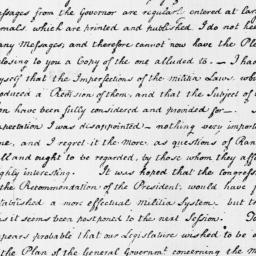 Messages from the Governor are regularly entered at larg
rnals which are printed and published I do not kee
any Messages, and therefore cannot now have the Ple
closing to you a Copy of the one alluded to. — I had
myself that the Imperfections of the militia Laws wou
roduced a Revision of them, and that the Subject of
ion have been fully considered and provided for—.
xpectation I was disappointed — nothing very import
ne, and I regret it the more as questions of Ran
ll and ought to be regarded, by those whom they aff
ighly interesting. It was hoped that the Congress
the Recommendation of the President, would have
tablished a more effectual militia System. but t
as it seems been postponed to the next Session. To
ppears probable that our Legislature wished to be
the Plan of the General Governmt. concerning the m